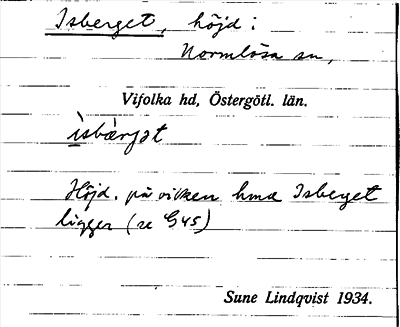 Isberget, höjd i
Normlösa sn,
Vifolka hd, Östergötl. län.
ìsbærjət
Höjd, på vilken hmd Isberget
ligger (se G45)
Sune Lindqvist 1934.